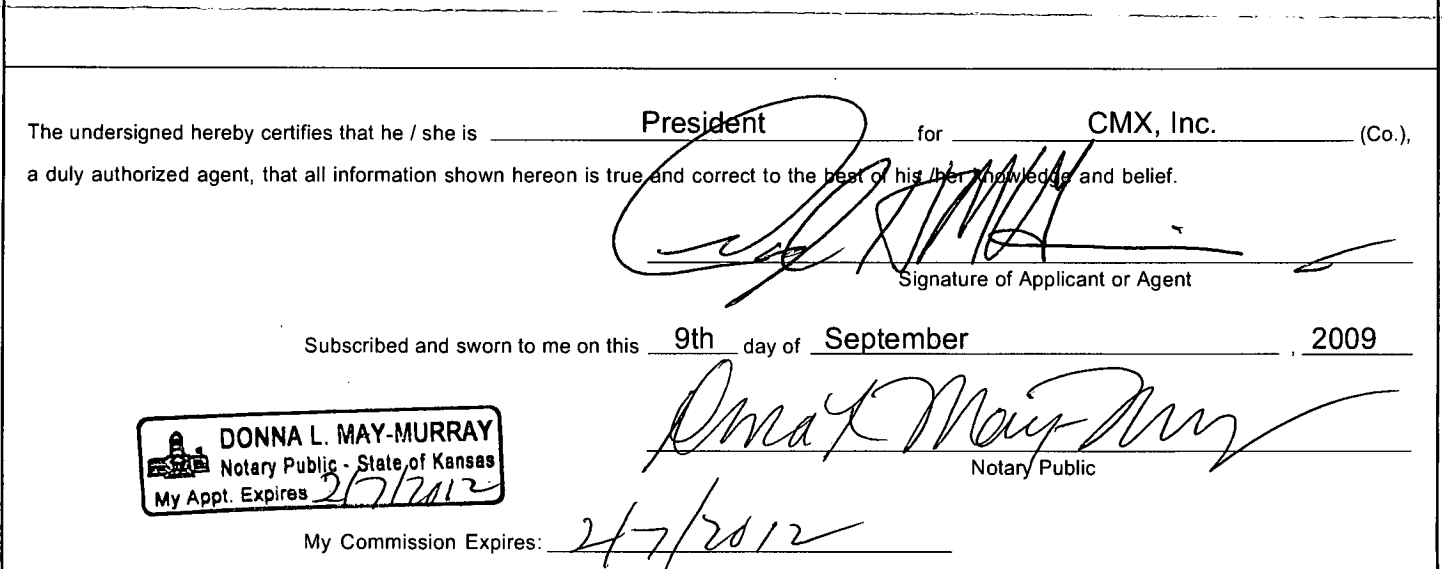 The undersigned hereby certifies that he / she is President for CMX, Inc. (Co.),
a duly authorized agent, that all information shown hereon is true and correct to the best of his /her knowledge and belief.
Signature of Applicant or Agent
Subscribed and sworn to me on this 9th day of September , 2009
Donna L May-Murray
Notary Public
DONNA L. MAY-MURRAY
Notary Public - State of Kansas
My Appt. Expires 2/7/2012
My Commission Expires: 2/7/2012